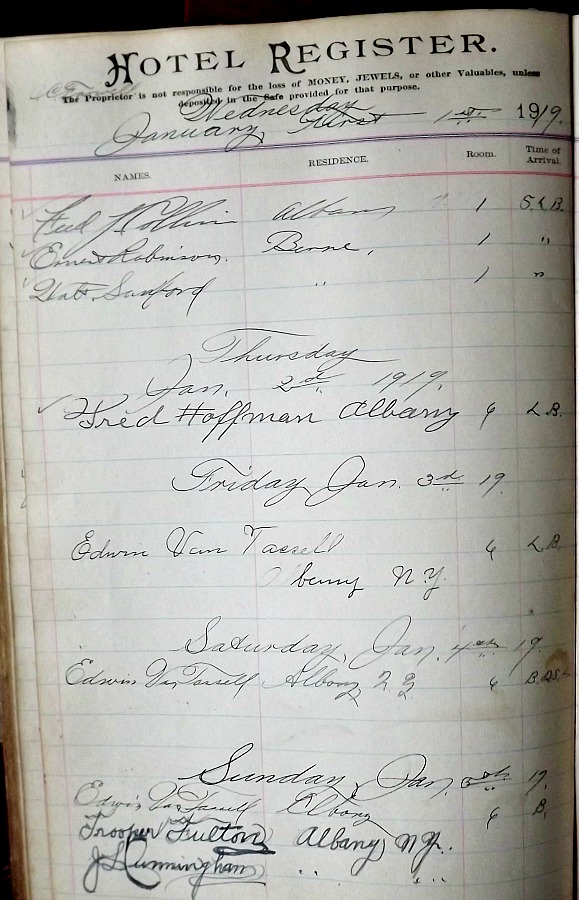 HOTEL REGISTER.
The Proprietor is not responsible for the loss of MONEY, JEWELS, or other Valuables, unless
deposited in the Safe provided for that purpose.
Wednesday
January, First 1st 1919.
NAMES. RESIDENCE. Room. Time of Arrival.
Albany " 1 S.L.B.
Ernest Robinson. Berne, 1 "
Sanford " 1 "
Thursday
Jan. 2nd 1919.
Fred Hoffman Albany 6 L.B.
Friday Jan. 3rd 19.
Edwin Van Tassell 6 L.B.
bany N.Y.
Saturday, Jan. 4th 19.
Edwin VanTassell Albany 6 B.
Sunday, Jan. 5th 19.
Edwin VanTassell Albany 6 B.
Trooper Fulton Albany N.Y.
J Cunningham " "